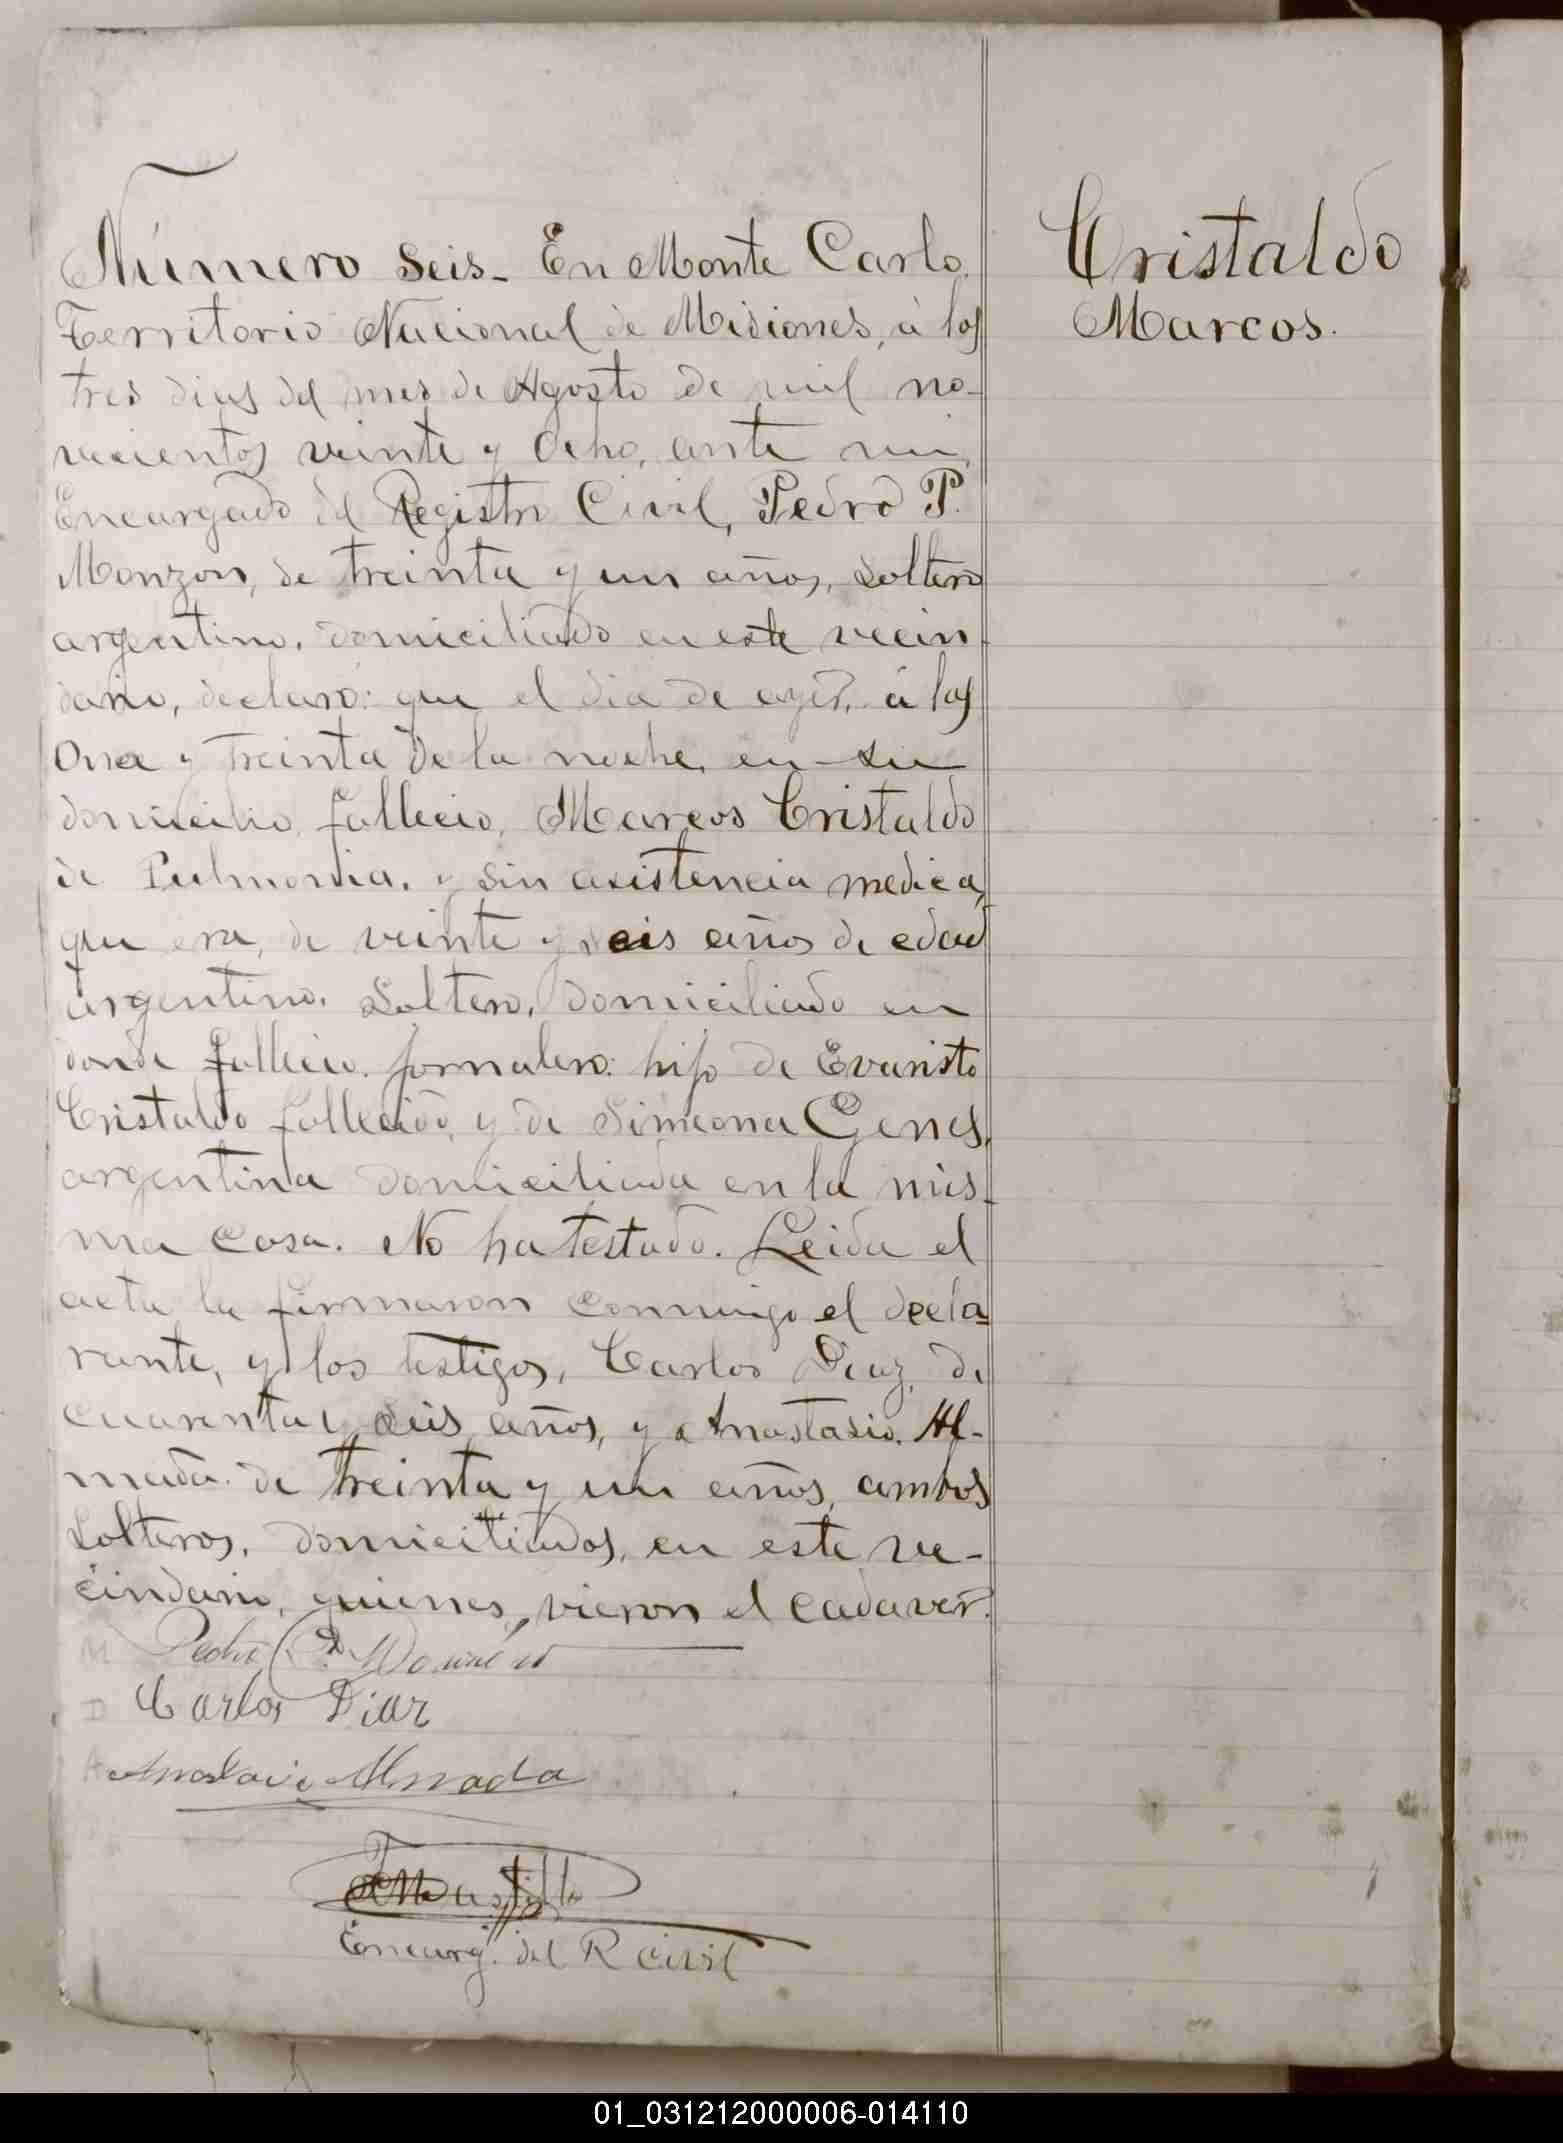 Número seis- En Monte Carlo,
Territorio Nacional de Misiones, á los
tres dias del mes de Agosto de mil no-
vecientos veinte y ocho, ante mi,
Encargado del Registro Civil, Pedro P.
Monzon, de treinta y un años, soltero
argentino, domiciliado en este vecin-
dario, declaró: que el dia de ayer, á las
once y treinta de la noche, en su
domicilio, fallecio, Marcos Cristaldo
de Pulmonia, y sin asistencia medica,
que era, de veinte y seis años de edad
argentino, soltero, domiciliado en
donde fallecio, jornalero: hijo de Evaristo
Cristaldo fallecido, y de Simeona Genes,
argentina domiciliada en la mis-
ma casa. No ha testado. Leida el
acta la firmaron conmigo el decla-
rante, y los testigos, Carlos Diaz, de
cuarenta y seis años, y Anastasio Al-
mada de treinta y un años, ambos
solteros, domiciliados, en este ve-
cindario, quienes, vieron el cadaver.
Pedro P.
Carlos Diaz
Anastacio Almada
Encarg. del R Civil
Cristaldo
Marcos.
01_031212000006-014110